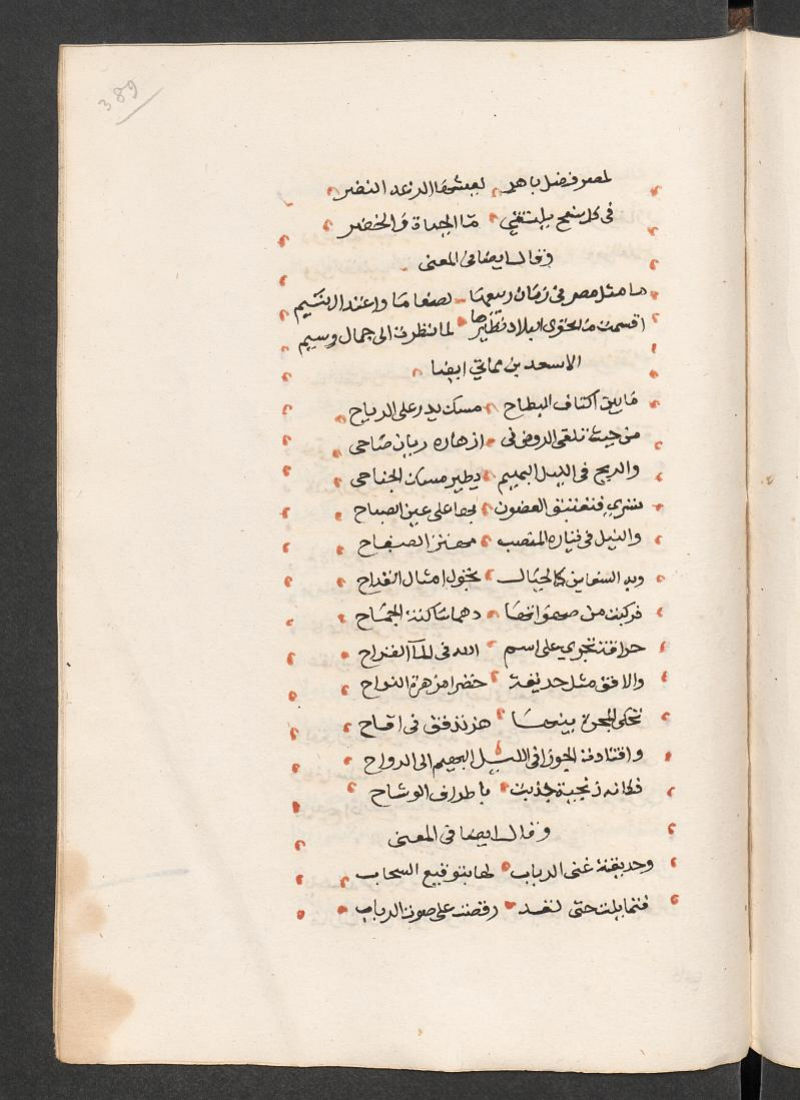 389
لمصر فضل باهر لعيشها الرغد النضر
في كل سفح يلتقي ما الحياة والخضر
وقال ايضا في المعنى
ما مثل مصر في زمان ربيعها لصفا ما واعتدال نسيم
اقسمت ما تحوي البلاد نظيرها لما نظرت الى جمال وسيم
الاسعد بن مماتي ايضا
ما بين اكناف البطاح مسك يدر على الرياح
من حيث تلقى الروض في ازهاره ريان ضاحي
والريح في الليل البهيم يطير مسك الجناحي
تسري فتغتبق الغصون بها على عين الصباح
والنيل في تياره المنصب مهتز الصفاح
وبه السفاين كالجبال تجول امثال القداح
فركبت من صهواتها دهما ساكنة الجماح
حراقة تجري على اسم الله في الماء القراح
والافق مثل حديقة خضرا مزهرة النواح
تحكي المجرة بينها نهر تدفق في اقاح
واقتادت الجوزا في الليل البهيم الى الرواح
فكانه زنجية جذبت باطراف الوشاح
وقال ايضا في المعنى
وحديقة غنى الرباب لها بتوقيع السحاب
فتمايلت حتى لقد رقصت على صوت الرباب